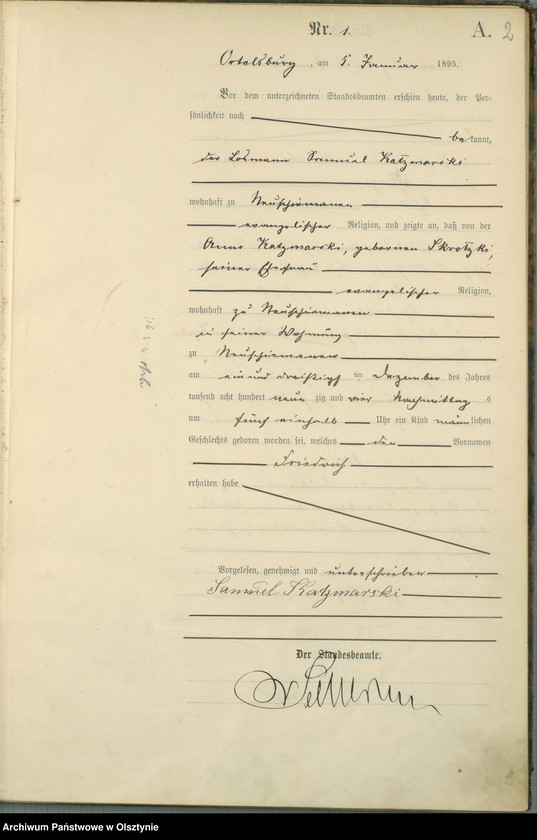 Nr. 1.
A. 2
Ortelsburg, am 5. Januar 1895.
Vor dem unterzeichneten Standesbeamten erschien heute, der Per-
sönlichkeit nach
be kannt,
der Losmann Samuel Katzmarski
wohnhaft zu Neuschiemanen
evangelischer Religion, und zeigte an, daß von der
Anna Katzmarski, geborenen Skrotzki,
seiner Ehefrau
evangelischer Religion,
wohnhaft zu Neuschiemanen
in seiner Wohnung
zu Neuschiemanen
am ein und dreißigsten Dezember des Jahres
tausend acht hundert neun zig und vier Nachmittag s
um fünf einhalb Uhr ein Kind männlichen
Geschlechts geboren worden sei, welches den Vornamen
Friedrich
erhalten habe
Vorgelesen, genehmigt und unterschrieben
Samuel Katzmarski
Der Standesbeamte.
Archiwum Państwowe w Olsztynie